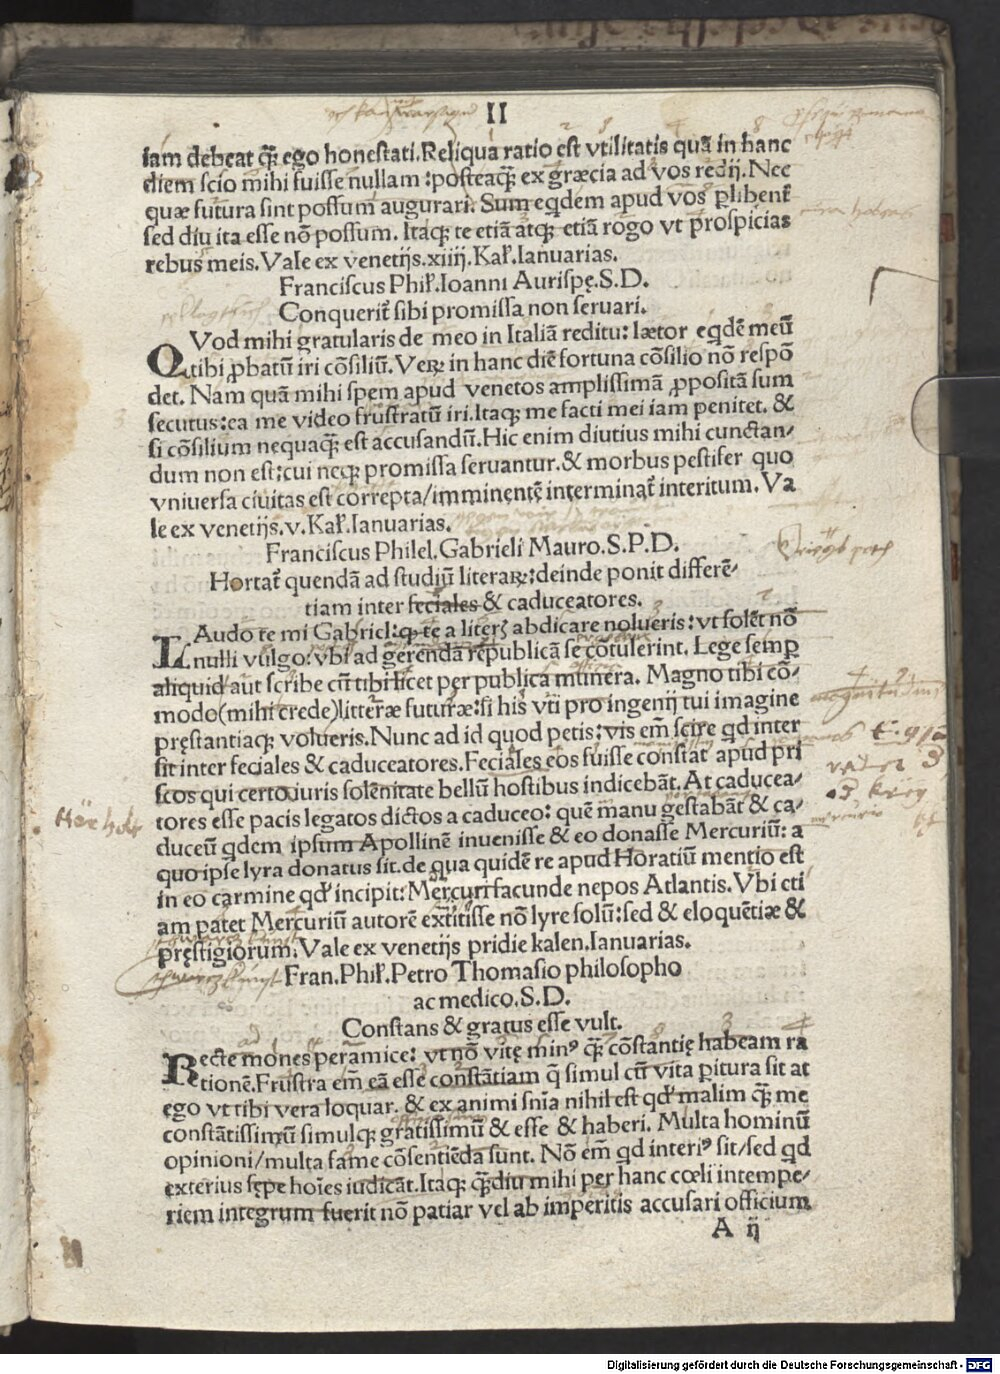 II
iam debeat q̃ ego honestati. Reliqua ratio est vtilitatis quã in hanc
diem scio mihi fuisse nullam: posteaq̃ ex græcia ad vos redij. Nec
quæ futura sint possum augurari. Sum eqdem apud vos ꝑlibent̃
sed diu ita esse nõ possum. Itaqꝫ te etiã atqꝫ etiã rogo vt prospicias
rebus meis. Vale ex venetijs. xiiij. Kal̃. Ianuarias.
Franciscus Phil̃. Ioanni Aurispę. S. D.
Conquerit̃ sibi promissa non seruari.
QVod mihi gratularis de meo in Italiã reditu: lætor eqdẽ meũ
tibi ꝓbatũ iri cõsiliũ. Veꝝ in hanc diẽ fortuna cõsilio nõ respõ
det. Nam quã mihi spem apud venetos amplissimã ꝓpositã sum
secutus: ea me video frustratũ iri. Itaqꝫ me facti mei iam penitet. &
si cõsilium nequaq̃ est accusandũ. Hic enim diutius mihi cunctan-
dum non est: cui neqꝫ promissa seruantur. & morbus pestifer quo
vniuersa ciuitas est correpta/imminentẽ interminat̃ interitum. Va
le ex venetijs. v. Kal̃. Ianuarias.
Franciscus Philel. Gabrieli Mauro. S. P. D.
Hortat̃ quendã ad studiũ literaꝝ: deinde ponit differẽ-
tiam inter feciales & caduceatores.
LAudo te mi Gabriel: ꝙ te a literꝭ abdicare nolueris: vt solẽt nõ
nulli vulgo: vbi ad gerendã rẽpublicã se cõtulerint. Lege semꝑ
aliquid aut scribe cũ tibi licet per publica munera. Magno tibi cõ-
modo (mihi crede) litteræ futuræ: si his vti pro ingenij tui imagine
pręstantiaqꝫ volueris. Nunc ad id quod petis: vis em̃ scire qd inter
sit inter feciales & caduceatores. Feciales eos fuisse constat apud pri
scos qui certo iuris solẽnitate bellũ hostibus indicebãt. At caducea-
tores esse pacis legatos dictos a caduceo: quẽ manu gestabãt & ca-
duceũ qdem ipsum Apollinẽ inuenisse & eo donasse Mercuriũ: a
quo ipse lyra donatus sit. de qua quidẽ re apud Horatiũ mentio est
in eo carmine qd̃ incipit: Mercuri facunde nepos Atlantis. Vbi eti
am patet Mercuriũ autorẽ extitisse nõ lyre solũ: sed & eloquẽtiæ &
pręstigiorum. Vale ex venetijs pridie kalen. Ianuarias.
Fran. Phil̃. Petro Thomasio philosopho
ac medico. S. D.
Constans & gratus esse vult.
REcte mones ꝑeramice: vt nõ vitę minꝰ q̃ cõstantię habeam ra
tionẽ. Frustra em̃ eã esse constãtiam q̃ simul cũ vita ꝑitura sit at
ego vt tibi vera loquar. & ex animi snĩa nihil est qd̃ malim q̃ me
constãtissimũ simulqꝫ gratissimũ & esse & haberi. Multa hominũ
opinioni/multa fame cõsentiẽda sunt. Nõ em̃ qd interiꝰ sit/sed qd
exterius sępe hoĩes iudicãt. Itaqꝫ q̃diu mihi per hanc cœli intempe-
riem integrum fuerit nõ patiar vel ab imperitis accusari officium
A ij
Digitalisierung gefördert durch die Deutsche Forschungsgemeinschaft - DFG